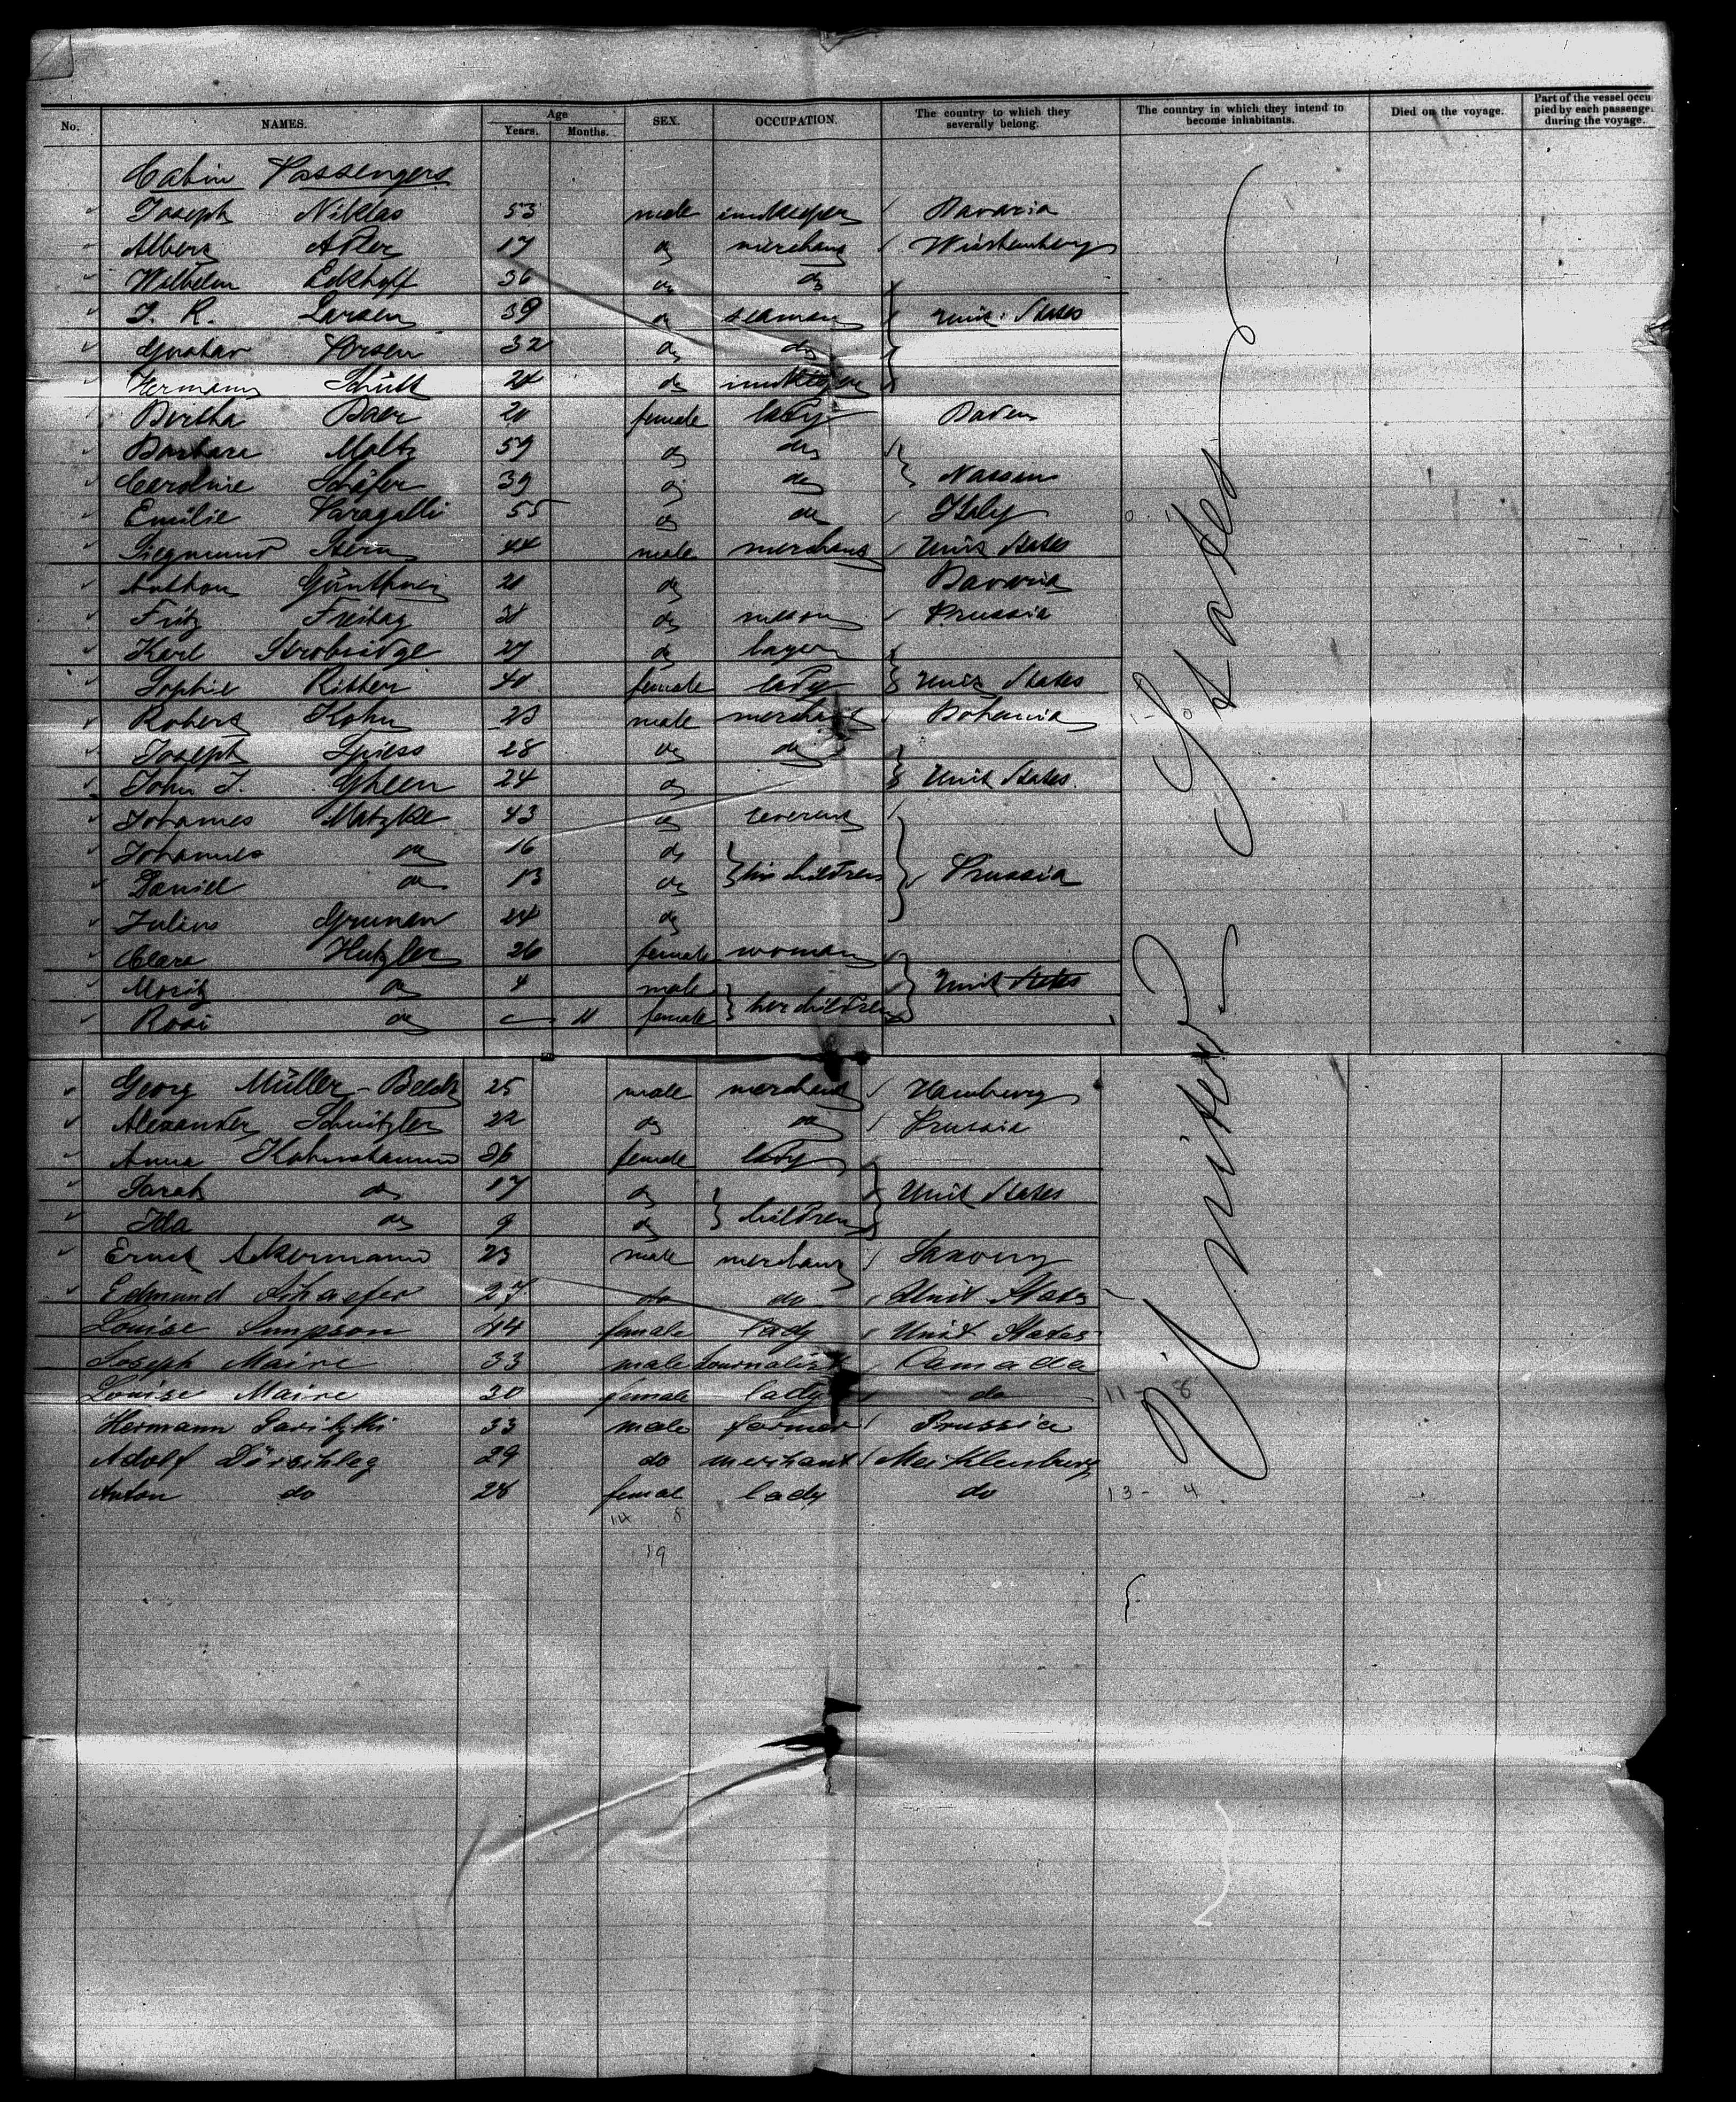 No. NAMES. Age Years. Months. SEX. OCCUPATION. The country to which they severally belong. The country in which they intend to become inhabitants. Died on the voyage. Part of the vessel occupied by each passenger during the voyage.
Cabin Passengers
Joseph Niklas 53 male innkeeper Bavaria
Albert Adler 17 do merchant Würtemberg
Wilhelm Eckhoff 36 do do
J. R. Larsen 39 do seaman Unit. States
Gustav Lorsen 32 do do
Hermann Schütt 24 do innkeeper
Bertha Baer 20 female lady Baden
Barbara Maltz 59 do do
Caroline Schäfer 39 do do Nassau
Emilie Paragalli 55 do do Italy
Siegmund Stern 44 male merchant Unit States
Anthon do Bavaria
Fritz Freitag do Prussia
Karl Strobridge 27 do
Sophie Ritter 40 female lady Unit States
Robert Kohn 23 male merchant Bohemia
Joseph Spiess 28 do do
John J. Gheen 24 do Unit States
Johannes Matzke 43 do reverend
Johannes do 16 do
Daniel do 13 do his children Prussia
Julius Grunen 24 do
Clara Hutzler 26 female woman
Moritz do 4 male Unit States
Rosi do 11 female her children
Georg Müller-Beeck 25 male merchant Hamburg
Alexander Schnitzler 22 do do Prussia
Anna 36 female lady
Sarah do 17 do Unit States
Ida do 9 do children
Ernst Ackermann 23 male merchant Saxony
Edmund Schaefer 27 do do Unit States
Louise Simpson 44 female lady Unit States
Joseph Maire 33 male Journalist Canada
Louise Maire 30 female lady do 11- 8
Hermann 33 male farmer Prussia
Adolf Dörschlag 29 do merchant Meiklenburg
Anton do 28 femal lady do 13- 4
14 8
19
United States